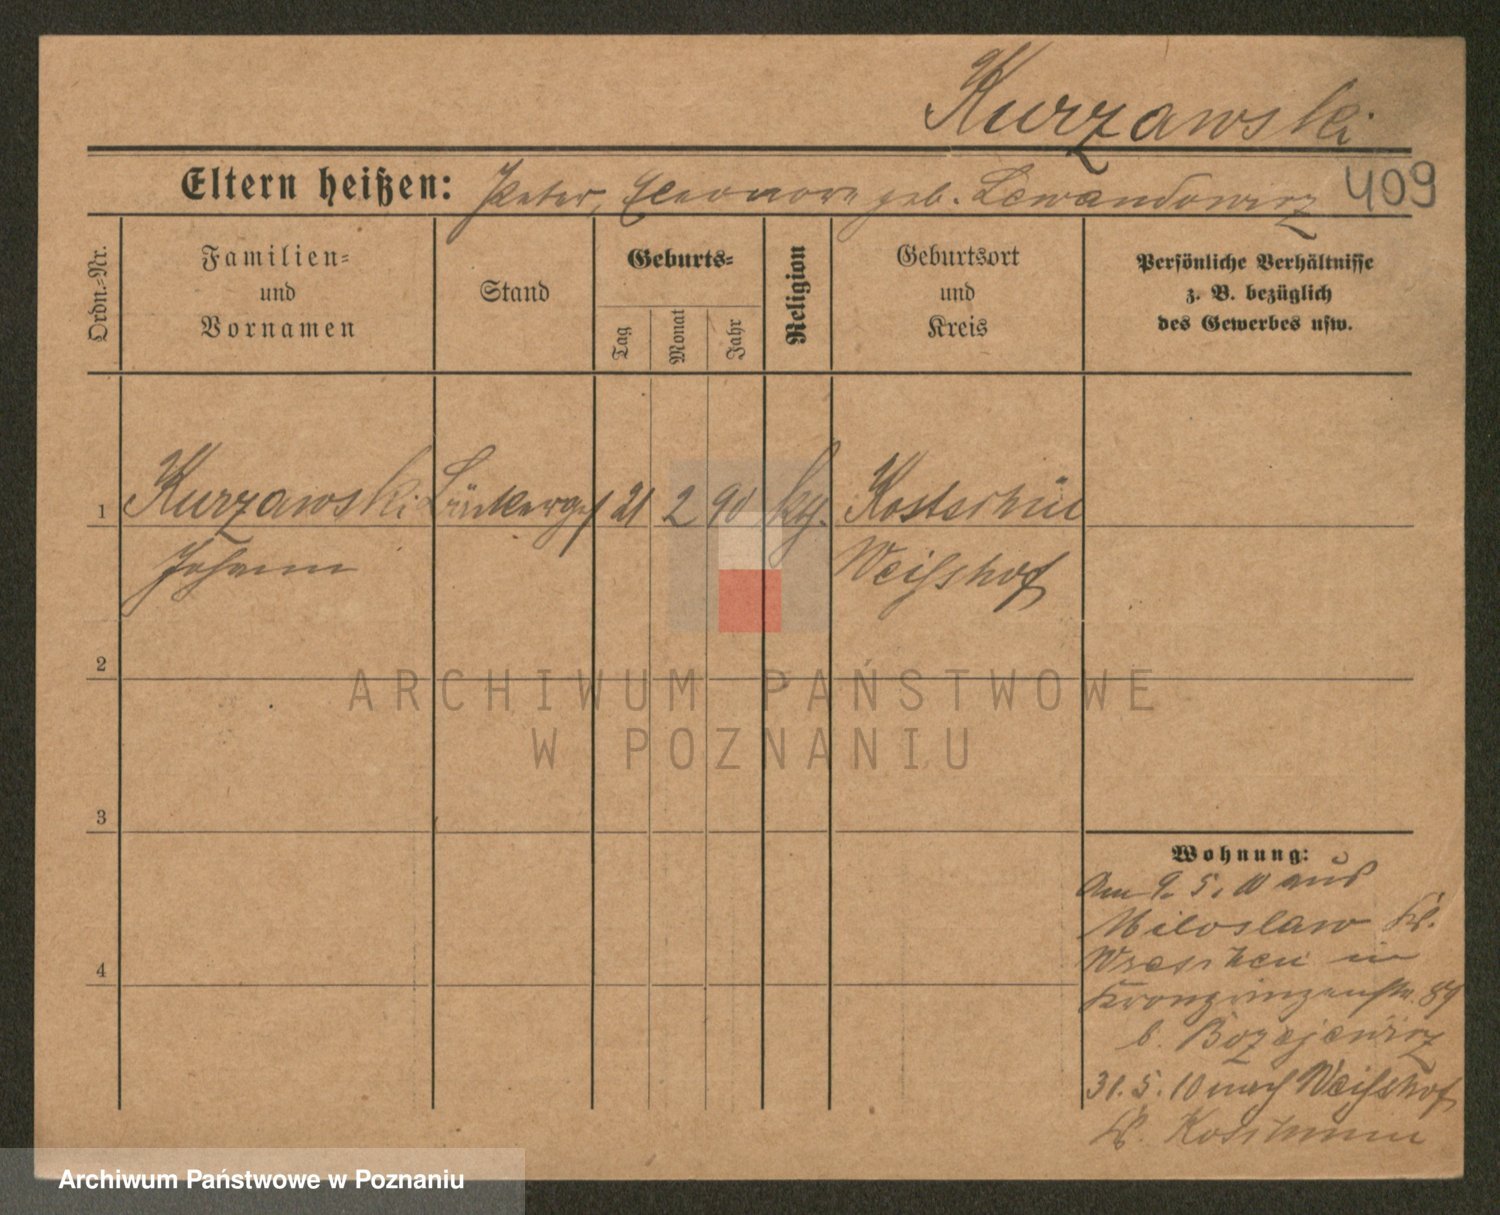 Kurzawski
Eltern heißen: Peter, Eleonore geb. Lewandowicz 409
Ordn.-Nr.
Familien=
und
Vornamen
Stand
Geburts=
Tag
Monat
Jahr
Religion
Geburtsort
und
Kreis
Persönliche Verhältnisse
z. B. bezüglich
des Gewerbes usw.
1 Kurzawski 21 2 90 Kosterhül
Johann Weißhof
2
ARCHIWUM PAŃSTWOWE
W POZNANIU
3
Wohnung:
Am 9. 5. 10 aus
Miloslaw Kr.
Wreschen in
Kronprinzenstr. 89
b. Bozejewicz
31. 5. 10 nach Weißhof
Kr.
4
Archiwum Państwowe w Poznaniu